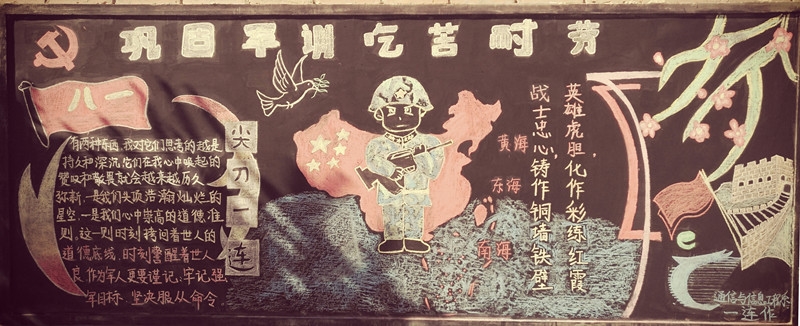 巩固军训吃苦耐劳
八一
尖刀一连
有两种东西,我对它们思考的越是
持久和深沉,它们在我心中唤起的
赞叹和敬畏就会越来越历久
弥新,一是我们头顶浩瀚灿烂的
星空,一是我们心中崇高的道德准
则,这一则时刻拷问着世人的
道德底线,时刻警醒着世人
良,作为军人更要谨记,牢记强
军目标,坚决服从命令
黄海
东海
南海
英雄虎胆,化作彩练红霞
战士忠心,铸作铜墙铁壁
通信与信息工程系
一连作